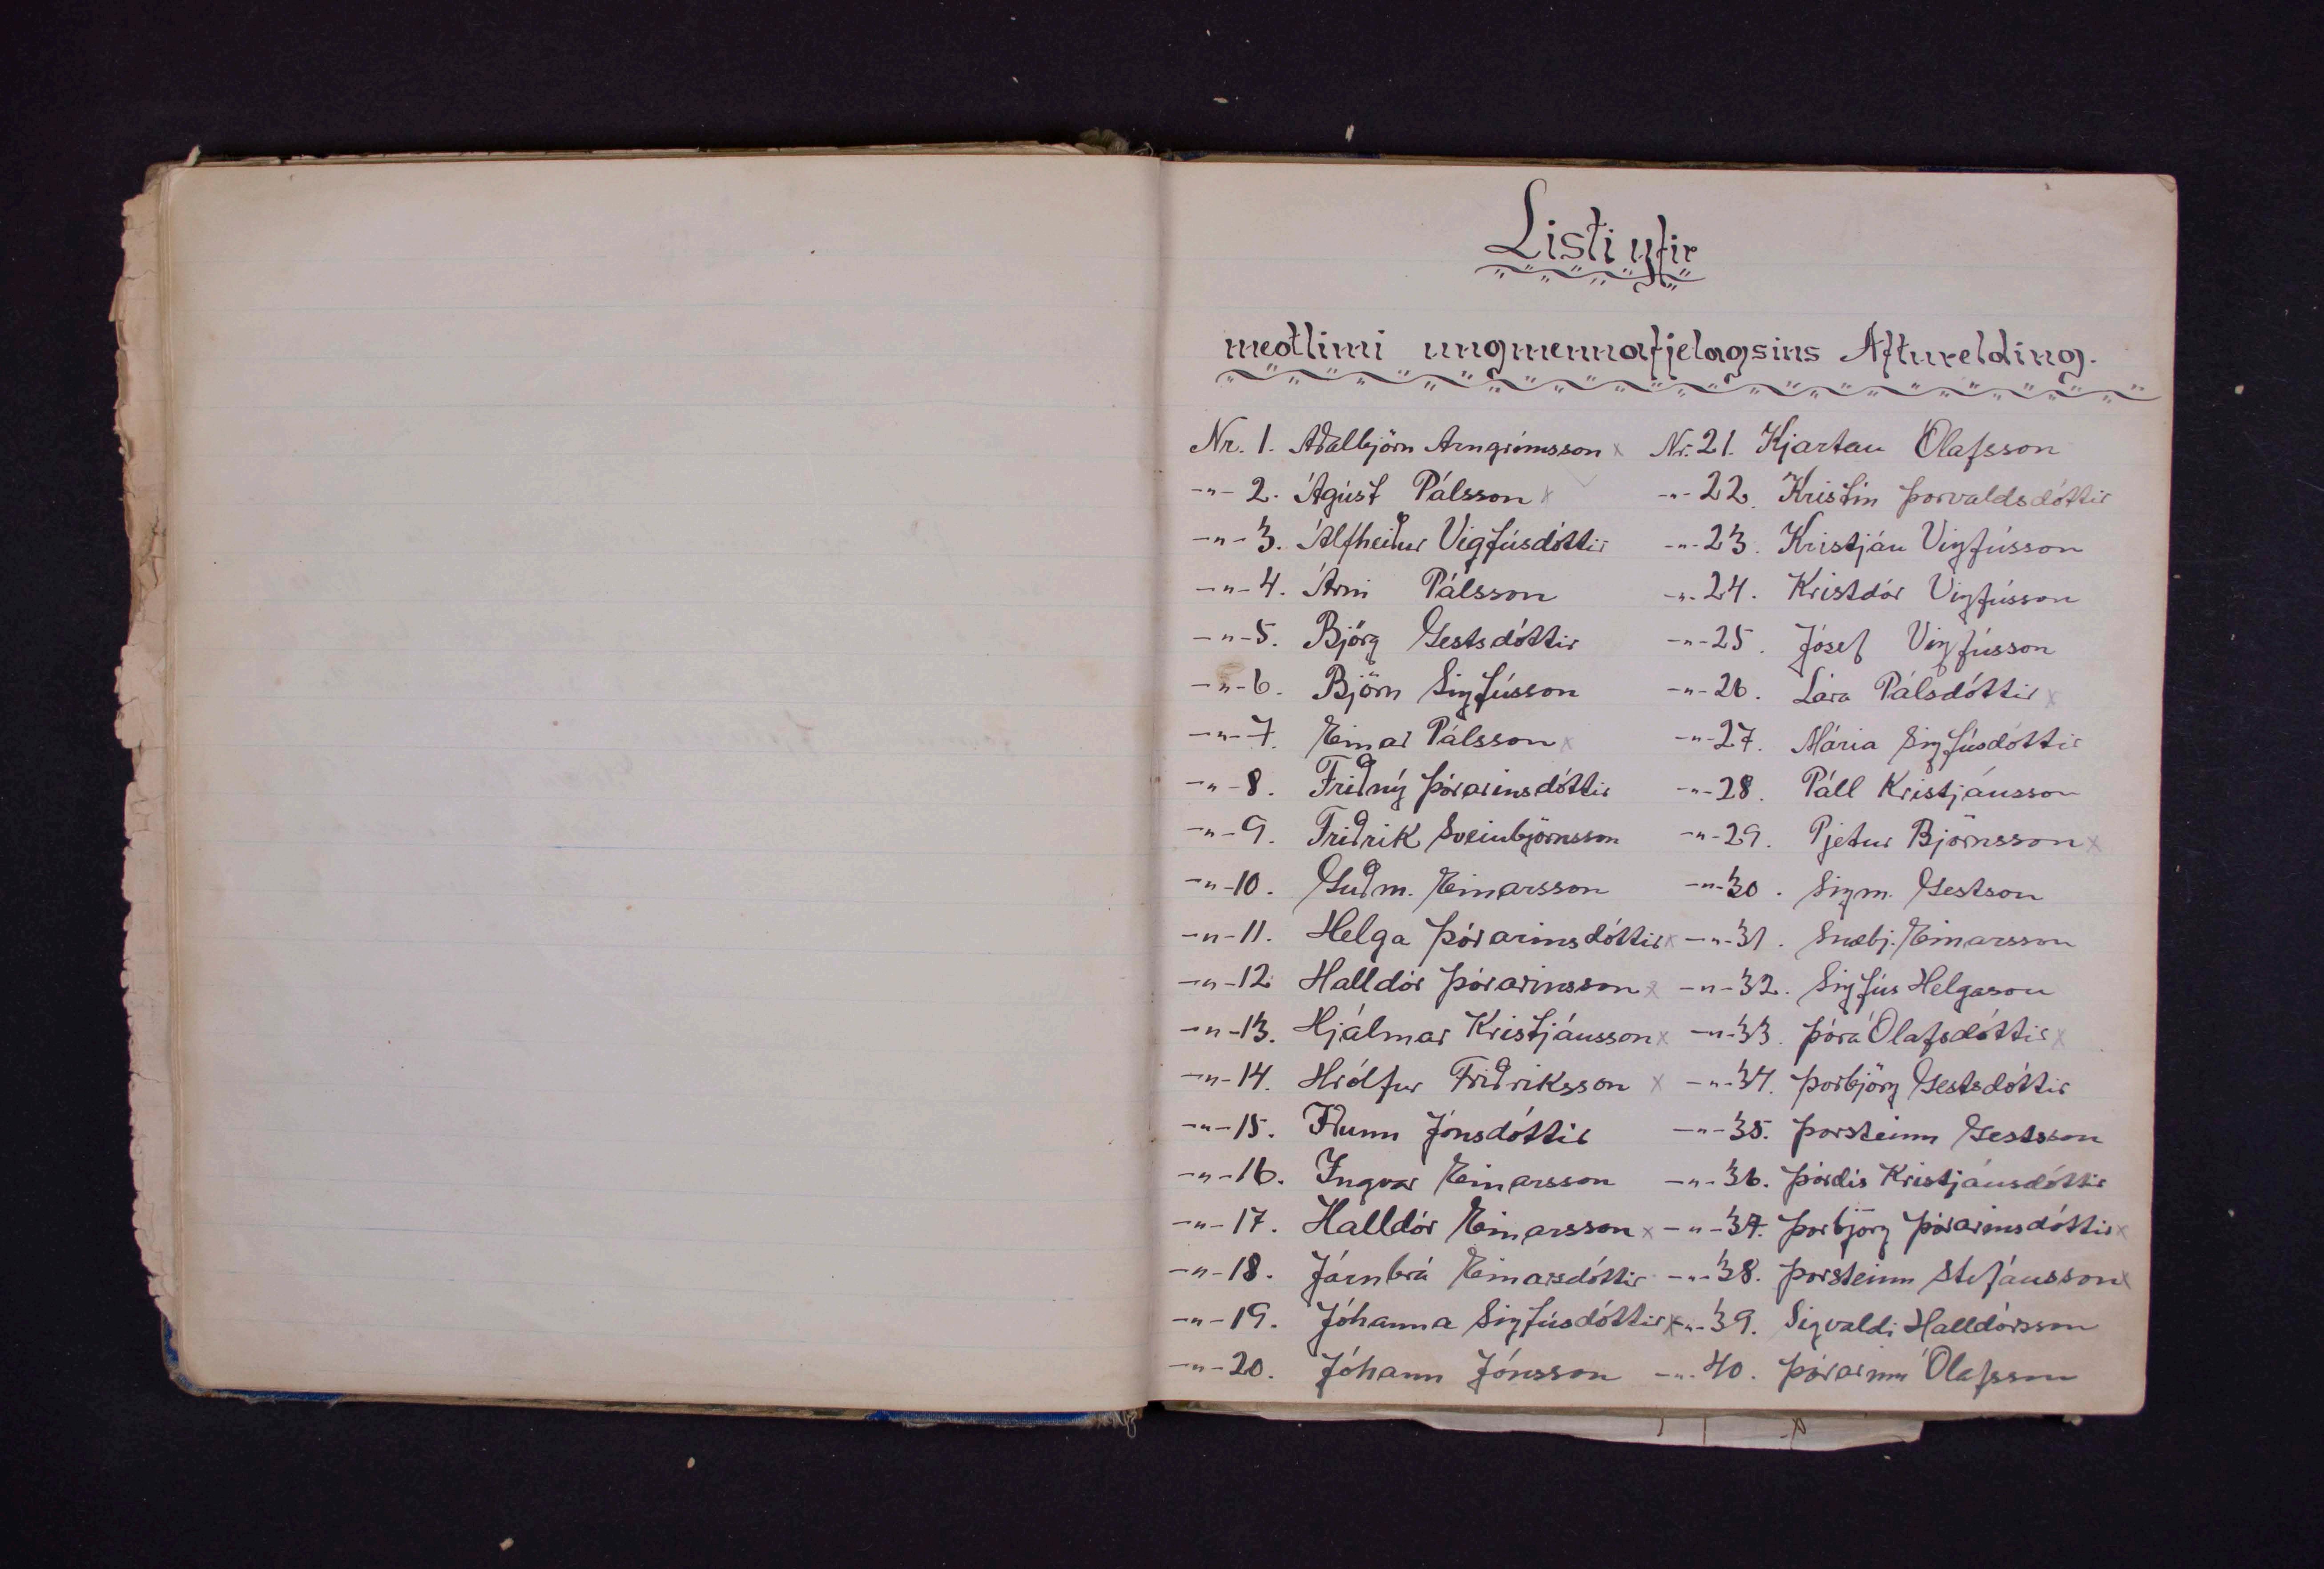 Listi yfir
meðlimi ungmennafjelagsins Afturelding.
Nr. 1. Aðalbjörn Arngrímsson x Nr. 21. Kjartan Ólafsson
-"- 2. Ágúst Pálsson x -"- 22. Kristín Þorvaldsdóttir
-"- 3. Álfheiður Vigfúsdóttir -"- 23. Kristján Vigfússon
-"- 4. Árni Pálsson -"- 24. Kristdór Vigfússon
-"- 5. Björg Gestsdóttir -"- 25. Jósef Vigfússon
-"- 6. Björn Sigfússon -"- 26. Lára Pálsdóttir x
-"- 7. Einar Pálsson x -"- 27. Mária Sigfúsdóttir
-"- 8. Friðný Þórarinsdóttir -"- 28. Páll Kristjánsson
-"- 9. Friðrik Sveinbjörnsson -"- 29. Pjetur Björnsson x
-"- 10. Guðm. Einarsson -"- 30. Sigm. Gestson
-"- 11. Helga Þórarinsdóttir x -"- 31. Snæbj. Einarsson
-"- 12 Halldór Þórarinsson x -"- 32. Sigfús Helgason
-"- 13. Hjálmar Kristjánsson x -"- 33. Þóra Ólafsdóttir x
-"- 14. Hrólfur Friðriksson x -"- 34. Þorbjörg Gestsdóttir
-"- 15. Iðunn Jónsdóttir -"- 35. Þorsteinn Gestsson
-"- 16. Ingvar Einarsson -"- 36. Þórdís Kristjánsdóttir
-"- 17. Halldór Einarsson x -"- 37. Þorbjörg Þórarinsdóttir x
-"- 18. Járnbrá Einarsdóttir -"- 38. Þorsteinn Stefánsson x
-"- 19. Jóhanna Sigfúsdóttir x -"- 39. Sigvaldi Halldórsson
-"- 20. Jóhann Jónsson -"- 40. Þórarinn Ólafsson